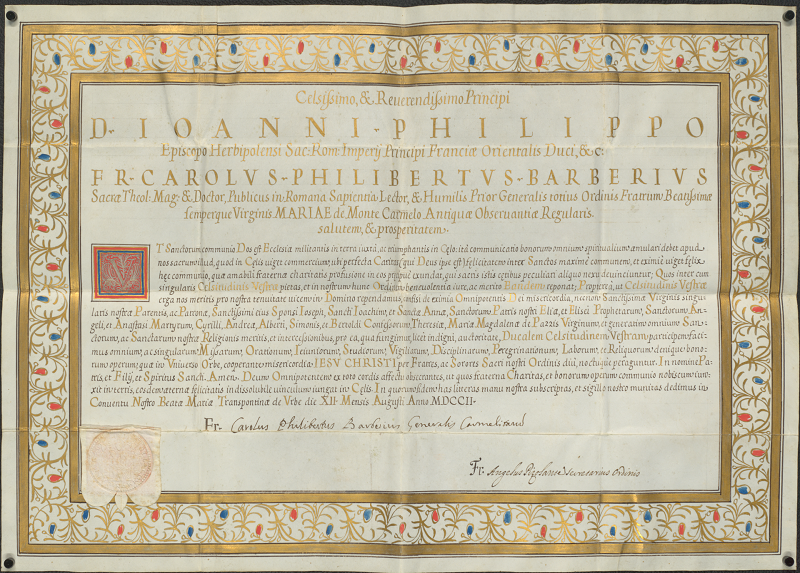 Celsissimo, & Reuerendissimo Principi
D. IOANNI PHILIPPO
Episcopo Herbipolensi Sac. Rom. Imperij Principi Franciæ Orientalis Duci, & c.
FR. CAROLVS PHILIBERTVS BARBERIVS
Sacræ Theol. Mag. & Doctor, Publicus in Romana Sapientia Lector, & Humilis Prior Generalis totius Ordinis Fratrum Beatissimæ
semperque Virginis MARIAE de Monte Carmelo Antiquæ Obseruantiæ Regularis
salutem, & prosperitatem.
VT Sanctorum communio Dos est Ecclesiæ militantis in terra iustà, ac triumphantis in Cęlo, ità communicatio bonorum omnium spiritualium æmulari debet apud
nos sacrum illud, quod in Cęlis uiget commercium, ubi perfecta Caritas (qui Deus ipse est) felicitatem inter Sanctos maximè communem, et eximiè uiget felix
hęc communio, quæ amabili fraternæ charitatis profusione in eos quoque exundat, qui sacris istis ęthibus peculiari aliquo nexu deuinciuntur; Quos inter cum
singularis Celsitudinis Vestræ pietas, et in nostrum hunc Ordinem beneuolentia iure, ac merito Eandem reponat; Propterea, ut Celsitudinis Vestræ
erga nos meritis pro nostra tenuitate uicem in Domino rependamus, confisi de eximia Omnipotentis Dei misericordia, necnon Sanctissimæ Virginis singu
laris nostræ Parentis, ac Patronæ, Sanctissimi eius Sponsi Ioseph, Sancti Ioachim, et Sanctæ Annæ, Sanctorum Patris nostri Eliæ, et Elisei Prophetarum, Sanctorum An-
geli, et Anastasi Martyrum, Cyrilli, Andreæ, Alberti, Simonis, et Bertoldi Confessorum, Theresiæ, Mariæ Magdalenæ de Pazzis Virginum, et generatim omnium San-
ctorum, ac Sanctarum nostræ Religionis meritis, et intercessionibus, pro ea, qua fungimur, licèt indigni, auctoritate, Ducalem Celsitudinem Vestram participem faci-
mus omnium, ac singularum Missarum, Orationum, Ieiuniorum, Studiorum, Vigiliarum, Disciplinarum, Peregrinationum, Laborum, et Reliquorum denique bono-
rum operum, quæ in Vniuerso Orbe, cooperante misericordia IESV CHRISTI per Fratres, ac Sorores Sacri nostri Ordinis diù, noctuque peraguntur. In nomine Pa-
tris, et Filij, et Spiritus Sancti. Amen. Deum Omnipotentem ex toto cordis affectu obsecrantes, ut quos fraterna Charitas, et bonorum operum communio nobiscum iun-
xit in terris, eosdem æternæ felicitatis indissolubile uinculum iungat in Cęlis. In quorum fidem has literas manu nostra subscriptas, et sigillo nostro munitas dedimus in
Conuentu Nostro Beatæ Mariæ Transpontinæ de Vrbe die XII. Mensis Augusti Anno MDCCII.
Fr. Carolus Philibertus Barberius Generalis Carmelitarum
Fr. Angelus secretarius Ordinis